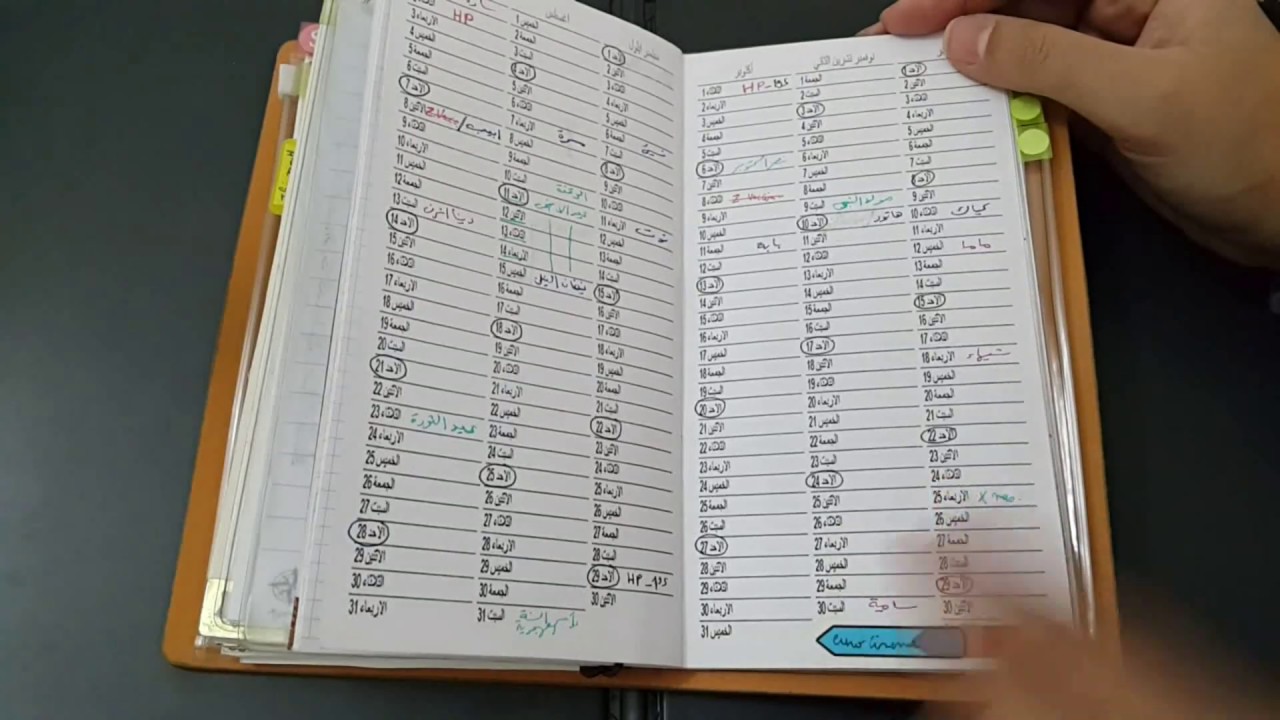 الاربعاء 3 HP
الخميس 4
الجمعة 5
السبت 6
الاحد 7
الاثنين 8
الثلاثاء 9
الاربعاء 10
الخميس 11
الجمعة 12
السبت 13
الاحد 14
الاثنين 15
الثلاثاء 16
الاربعاء 17
الخميس 18
الجمعة 19
السبت 20
الاحد 21
الاثنين 22
الثلاثاء 23 عيد الثورة
الاربعاء 24
الخميس 25
الجمعة 26
السبت 27
الاحد 28
الاثنين 29
الثلاثاء 30
الاربعاء 31
اغسطس
الخميس 1
الجمعة 2
السبت 3
الاحد 4
الاثنين 5
الثلاثاء 6
الاربعاء 7
الخميس 8
الجمعة 9
السبت 10
الاحد 11
الاثنين 12
الثلاثاء 13
الاربعاء 14
الخميس 15
الجمعة 16
السبت 17
الاحد 18
الاثنين 19
الثلاثاء 20
الاربعاء 21
الخميس 22
الجمعة 23
السبت 24
الاحد 25
الاثنين 26
الثلاثاء 27
الاربعاء 28
الخميس 29
الجمعة 30
السبت 31
سبتمبر ايلول
الاحد 1
الاثنين 2
الثلاثاء 3
الاربعاء 4
الخميس 5
الجمعة 6
السبت 7
الاحد 8
الاثنين 9
الثلاثاء 10
الاربعاء 11 توت
الخميس 12
الجمعة 13
السبت 14
الاحد 15
الاثنين 16
الثلاثاء 17
الاربعاء 18
الخميس 19
الجمعة 20
السبت 21
الاحد 22
الاثنين 23
الثلاثاء 24
الاربعاء 25
الخميس 26
الجمعة 27
السبت 28
الاحد 29 HP
الاثنين 30
أكتوبر
الثلاثاء 1 HP
الاربعاء 2
الخميس 3
الجمعة 4
السبت 5
الاحد 6
الاثنين 7
الثلاثاء 8
الاربعاء 9
الخميس 10
الجمعة 11 بابة
السبت 12
الاحد 13
الاثنين 14
الثلاثاء 15
الاربعاء 16
الخميس 17
الجمعة 18
السبت 19
الاحد 20
الاثنين 21
الثلاثاء 22
الاربعاء 23
الخميس 24
الجمعة 25
السبت 26
الاحد 27
الاثنين 28
الثلاثاء 29
الاربعاء 30
الخميس 31
نوفمبر تشرين الثاني
الجمعة 1
السبت 2
الاحد 3
الاثنين 4
الثلاثاء 5
الاربعاء 6
الخميس 7
الجمعة 8
السبت 9 مولد النبي
الاحد 10 هاتور
الاثنين 11
الثلاثاء 12
الاربعاء 13
الخميس 14
الجمعة 15
السبت 16
الاحد 17
الاثنين 18
الثلاثاء 19
الاربعاء 20
الخميس 21
الجمعة 22
السبت 23
الاحد 24
الاثنين 25
الثلاثاء 26
الاربعاء 27
الخميس 28
الجمعة 29
السبت 30 سامية
الاحد 1
الاثنين 2
الثلاثاء 3
الاربعاء 4
الخميس 5
الجمعة 6
السبت 7
الاحد 8
الاثنين 9
الثلاثاء 10 كياك
الاربعاء 11
الخميس 12 ماما
الجمعة 13
السبت 14
الاحد 15
الاثنين 16
الثلاثاء 17
الاربعاء 18 شيماء
الخميس 19
الجمعة 20
السبت 21
الاحد 22
الاثنين 23
الثلاثاء 24
الاربعاء 25 X mas.
الخميس 26
الجمعة 27
السبت 28
الاحد 29
الاثنين 30